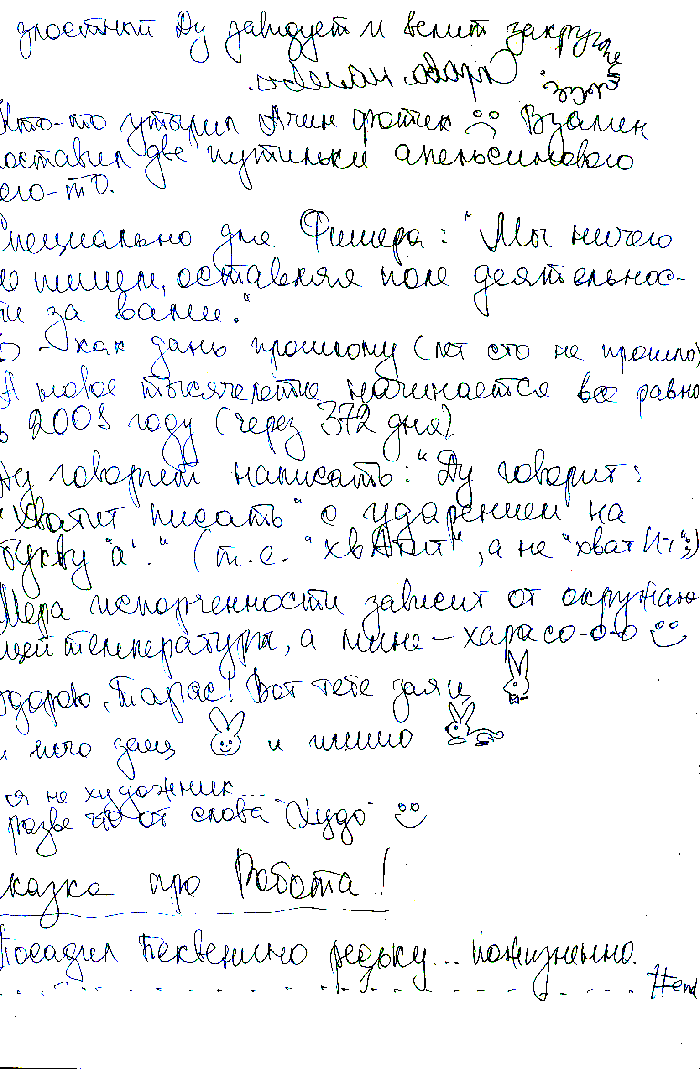 злостный Ду завидует и велит закругле
Кто-то утырил Ачин фотик Взамен
оставил две путинки апельсинового
его-то.
Специально для Фишера: "Мы ничего
не пишем, оставляя поле деятельнос-
ти за вами."
- как дань прошлому (лет сто не прошло)
А новое тысячелетие начинается все равно
в 2001 году (через 372 дня)
Ду говорит написать: "Ду говорит:
"Хватит писать" с ударением на
букву "а"." (т.е. "хвАтит", а не "хватИт")
Мера испорченности зависит от окружаю-
щей температуры, а мине - харасо-о-о
здарово, Тарас! Вот тебе заяц
и исчо заяц и исчо
я не художник...
разве что от слова "Худо"
сказка про Робота!
Посадил Пеквенчино редьку... пожизненно.
#end